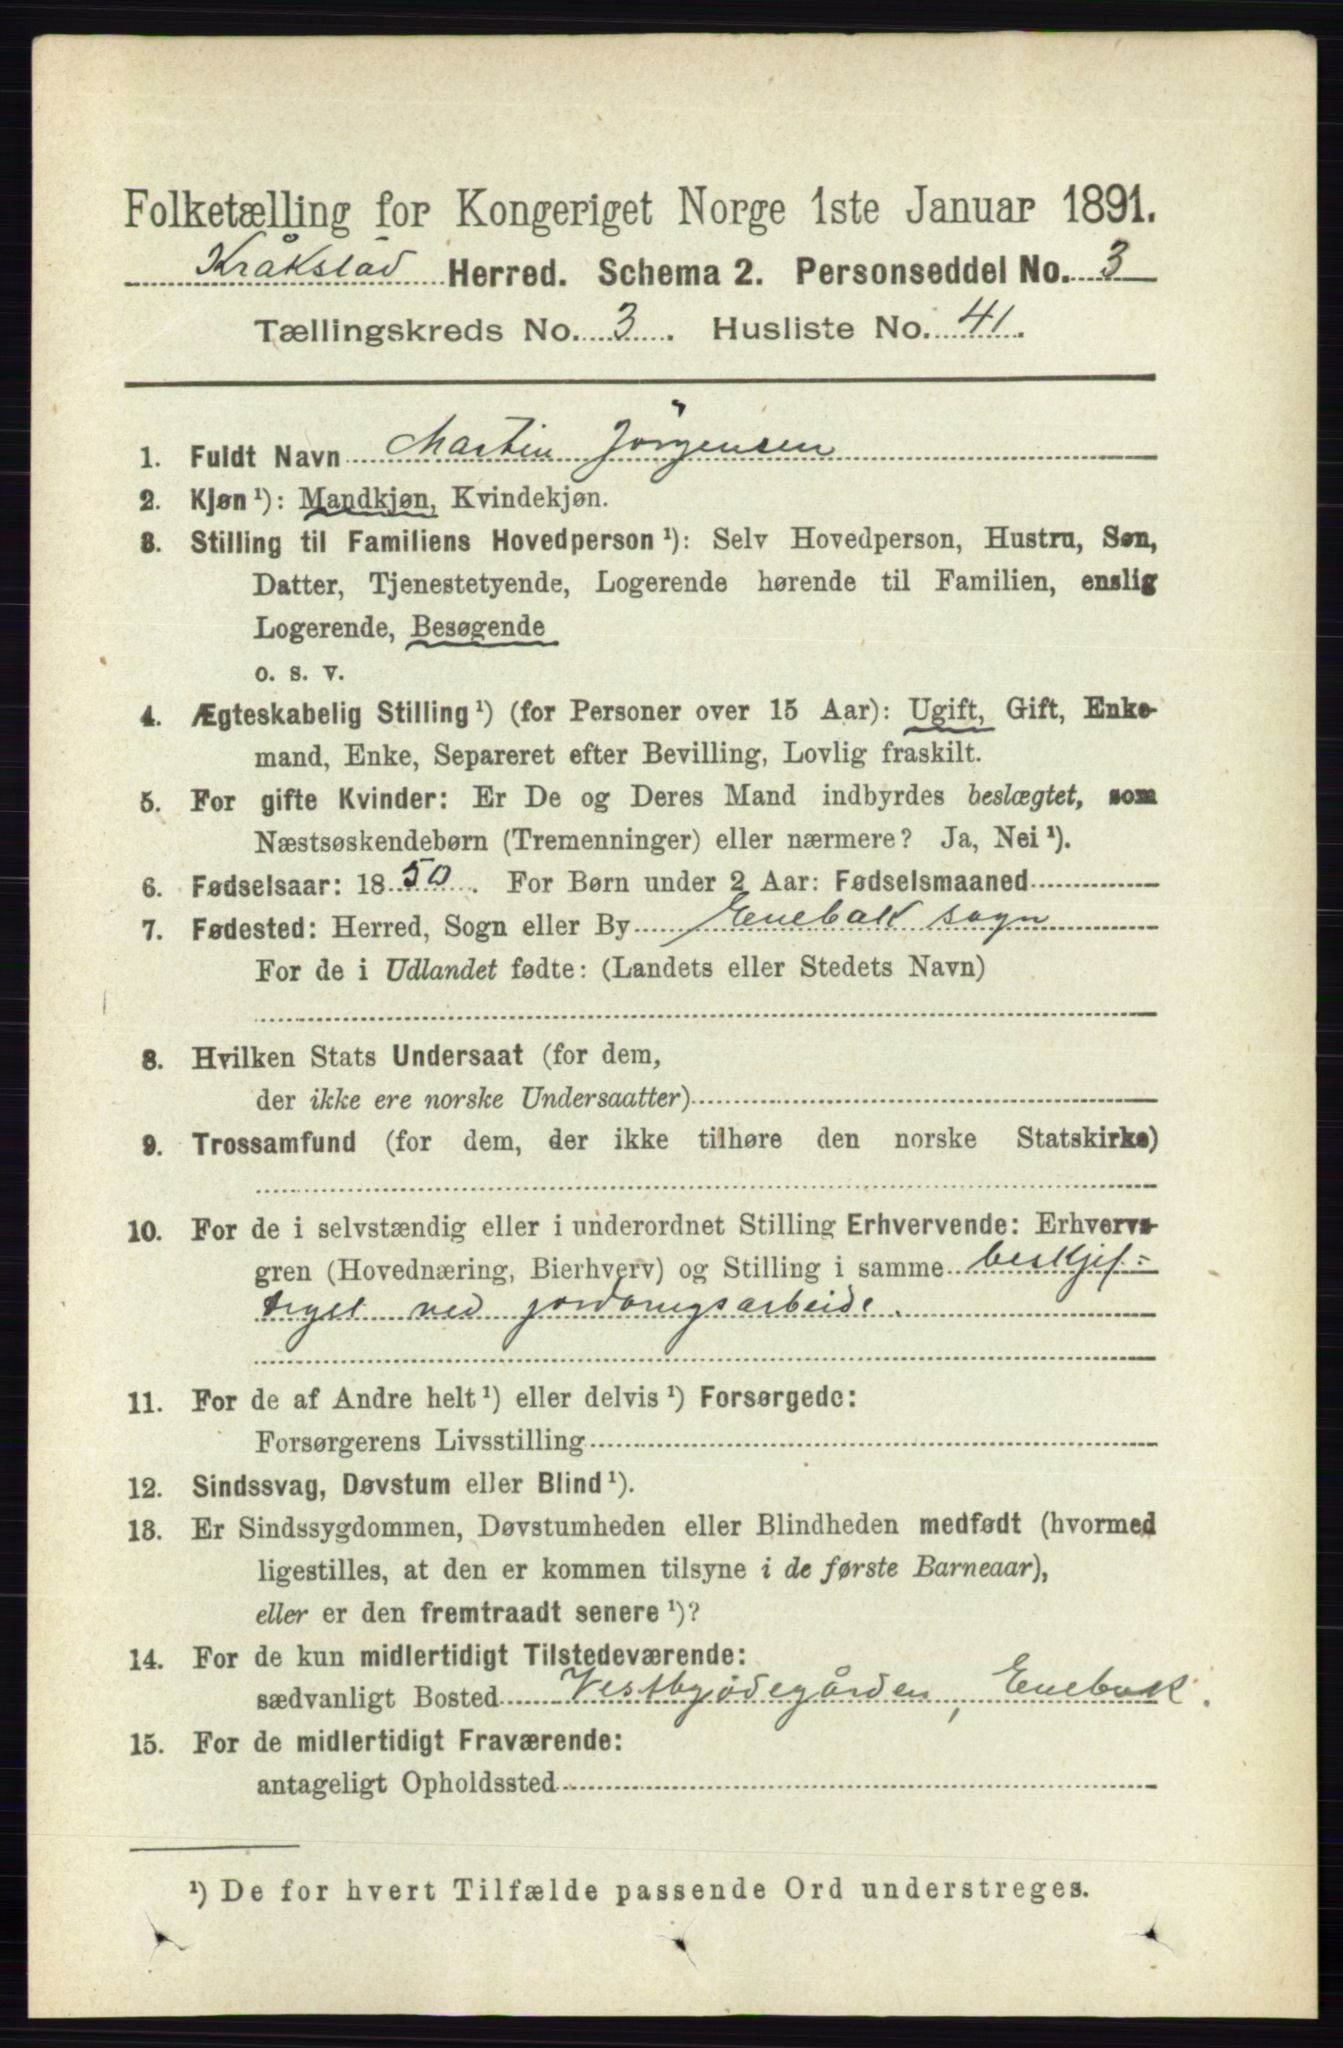 Folketælling for Kongeriget Norge 1ste Januar 1891.
Kråkstad Herred. Schema 2. Personseddel No. 3
Tællingskreds No. 3. Husliste No. 41.
1. Fuldt Navn Martin Jörgensen
2. Kjøn ¹): Mandkjøn, Kvindekjøn.
3. Stilling til Familiens Hovedperson ¹): Selv Hovedperson, Hustru, Søn,
Datter, Tjenestetyende, Logerende hørende til Familien, enslig
Logerende, Besøgende
o. s. v.
4. Ægteskabelig Stilling ¹) (for Personer over 15 Aar): Ugift, Gift, Enke-
mand, Enke, Separeret efter Bevilling, Lovlig fraskilt.
5. For gifte Kvinder: Er De og Deres Mand indbyrdes beslægtet, som
Næstsøskendebørn (Tremenninger) eller nærmere? Ja, Nei ¹).
6. Fødselsaar: 1850. For Børn under 2 Aar: Fødselsmaaned
7. Fødested: Herred, Sogn eller By Enebak sogn
For de i Udlandet fødte: (Landets eller Stedets Navn)
8. Hvilken Stats Undersaat (for dem,
der ikke ere norske Undersaatter)
9. Trossamfund (for dem, der ikke tilhøre den norske Statskirke)
10. For de i selvstændig eller i underordnet Stilling Erhvervende: Erhvervs-
gren (Hovednæring, Bierhverv) og Stilling i samme beskjef=
tiget ved jordbrugsarbeide.
11. For de af Andre helt ¹) eller delvis ¹) Forsørgede:
Forsørgerens Livsstilling
12. Sindssvag, Døvstum eller Blind ¹).
13. Er Sindssygdommen, Døvstumheden eller Blindheden medfødt (hvormed
ligestilles, at den er kommen tilsyne i de første Barneaar),
eller er den fremtraadt senere ¹)?
14. For de kun midlertidigt Tilstedeværende:
sædvanligt Bosted Vestbyødegården, Enebak.
15. For de midlertidigt Fraværende:
antageligt Opholdssted
¹) De for hvert Tilfælde passende Ord understreges.